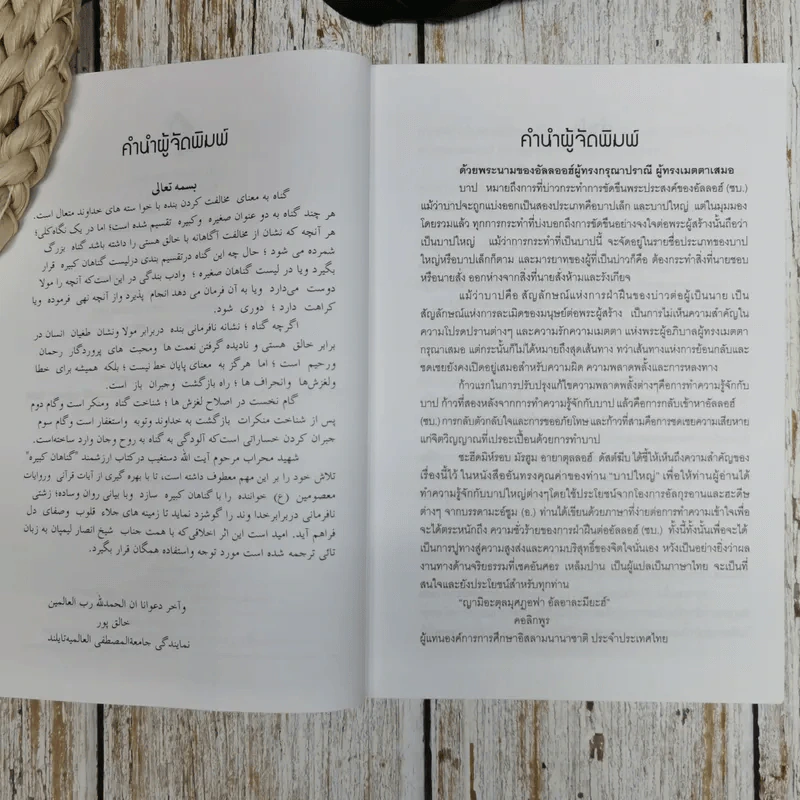 คำนำผู้จัดพิมพ์
بسمه تعالی
گناه به معنای مخالفت کردن بنده با خوا سته های خداوند متعال است.
هر چند گناه به دو عنوان صغیره وکبیره تقسیم شده است؛ اما در یک نگاه‌کلی؛
هر آنچه که نشان از مخالفت آگاهانه با خالق هستی را داشته باشد گناه بزرگ
شمرده می شود ؛ حال چه این گناه درتقسیم بندی درلیست گناهان کبیره قرار
بگیرد ویا در لیست گناهان صغیره ؛ وادب بندگی در این است‌که آنچه را مولا
دوست می‌دارد ویا به آن فرمان می دهد انجام پذیرد واز آنچه نهی فرموده ویا
کراهت دارد ؛ دوری شود.
اگرچه گناه ؛ نشانه نافرمانی بنده دربرابر مولا ونشان طغیان انسان در
برابر خالق هستی و نادیده گرفتن نعمت ها ومحبت های پروردگار رحمان
ورحیم است ؛ اما هرگز به معنای پایان خط نیست ؛ بلکه همیشه برای خطا
ولغزش‌ها وانحراف ها ؛ راه بازگشت وجبران باز است.
گام نخست در اصلاح لغزش ها ؛ شناخت گناه ومنکر است و‌گام دوم
پس از شناخت منکرات بازگشت به خداوند وتوبه واستغفار است وگام سوم
جبران کردن خساراتی است‌که آلودگی به گناه به روح وجان وارد ساخته‌است.
شهید محراب مرحوم آیت الله دستغیب درکتاب ارزشمند "گناهان کبیره"
تلاش خود را بر این مهم معطوف داشته است، تا با بهره گیری از آیات قرآنی وروایات
معصومین (ع) خواننده را با گناهان کبیره سازد وبا بیانی روان وساده؛ زشتی
نافرمانی دربرابرخدا وند را گوشزد نماید تا زمینه های جلاء قلوب وصفای دل
فراهم آید. امید است این اثر اخلاقی‌که با همت جناب شیخ انصار لیمپان به زبان
تائی ترجمه شده است مورد توجه واستفاده همگان قرار بگیرد.
وآخر دعوانا ان الحمدلله رب العالمین
خالق پور
نمایندگی جامعةالمصطفی العالمیةتایلند
คำนำผู้จัดพิมพ์
ด้วยพระนามของอัลลออฮ์ผู้ทรงกรุณาปราณี ผู้ทรงเมตตาเสมอ
บาป หมายถึงการที่บ่าวกระทำการขัดขืนพระประสงค์ของอัลลอฮ์ (ซบ.)
แม้ว่าบาปจะถูกแบ่งออกเป็นสองประเภทคือบาปเล็ก และบาปใหญ่ แต่ในมุมมอง
โดยรวมแล้ว ทุกการกระทำที่บ่งบอกถึงการขัดขืนอย่างจงใจต่อพระผู้สร้างนั้นถือว่า
เป็นบาปใหญ่ แม้ว่าการกระทำที่เป็นบาปนี้ จะจัดอยู่ในรายชื่อประเภทของบาป
ใหญ่หรือบาปเล็กก็ตาม และมารยาทของผู้ที่เป็นบ่าวก็คือ ต้องกระทำสิ่งที่นายชอบ
หรือนายสั่ง ออกห่างจากสิ่งที่นายสั่งห้ามและรังเกียจ
แม้ว่าบาปคือ สัญลักษณ์แห่งการฝ่าฝืนของบ่าวต่อผู้เป็นนาย เป็น
สัญลักษณ์แห่งการละเมิดของมนุษย์ต่อพระผู้สร้าง เป็นการไม่เห็นความสำคัญใน
ความโปรดปรานต่างๆ และความรักความเมตตา แห่งพระผู้อภิบาลผู้ทรงเมตตา
กรุณาเสมอ แต่กระนั้นก็ไม่ได้หมายถึงสุดเส้นทาง ทว่าเส้นทางแห่งการย้อนกลับและ
ชดเชยยังคงเปิดอยู่เสมอสำหรับความผิด ความพลาดพลั้งและการหลงทาง
ก้าวแรกในการปรับปรุงแก้ไขความพลาดพลั้งต่างๆคือการทำความรู้จักกับ
บาป ก้าวที่สองหลังจากการทำความรู้จักกับบาป แล้วคือการกลับเข้าหาอัลลอฮ์
(ซบ.) การกลับตัวกลับใจและการขออภัยโทษ และก้าวที่สามคือการชดเชยความเสียหาย
แก่จิตวิญญาณที่เปรอะเปื้อนด้วยการทำบาป
ชะฮีดมิห์รอบ มัรฮูม อายาตุลลอฮ์ ดัสต์ฆีบ ได้ชี้ให้เห็นถึงความสำคัญของ
เรื่องนี้ไว้ ในหนังสืออันทรงคุณค่าของท่าน "บาปใหญ่" เพื่อให้ท่านผู้อ่านได้
ทำความรู้จักกับบาปใหญ่ต่างๆโดยใช้ประโยชน์จากโองการอัลกุรอานและฮะดีษ
ต่างๆ จากบรรดามะอ์ซูม (อ.) ท่านได้เขียนด้วยภาษาที่ง่ายต่อการทำความเข้าใจเพื่อ
จะได้ตระหนักถึง ความชั่วร้ายของการฝ่าฝืนต่ออัลลอฮ์ (ซบ.) ทั้งนี้ทั้งนั้นเพื่อจะได้
เป็นการปูทางสู่ความสูงส่งและความบริสุทธิ์ของจิตใจนั่นเอง หวังเป็นอย่างยิ่งว่าผล
งานทางด้านจริยธรรมที่เชคอันศอร เหล็มปาน เป็นผู้แปลเป็นภาษาไทย จะเป็นที่
สนใจและยังประโยชน์สำหรับทุกท่าน
"ญามิอะตุลมุศฏอฟา อัลอาละมียะฮ์"
คอลิกพูร
ผู้แทนองค์การการศึกษาอิสลามนานาชาติ ประจำประเทศไทย